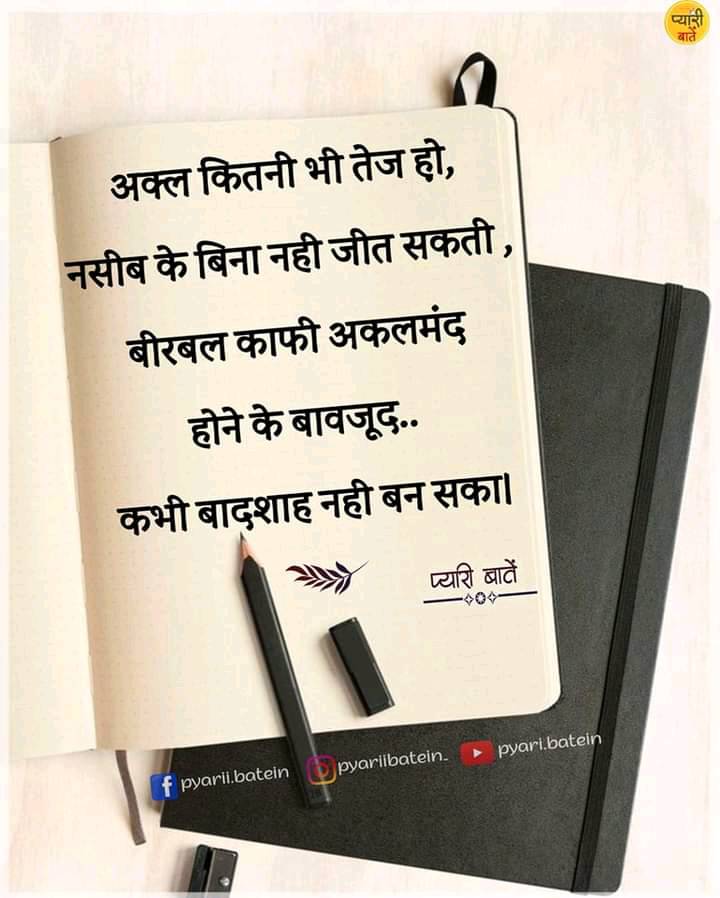 प्यारी
बातें
अक्ल कितनी भी तेज हो,
नसीब के बिना नही जीत सकती ,
बीरबल काफी अकलमंद
होने के बावजूद..
कभी बादशाह नही बन सका।
प्यारी बातें
pyarii.batein
pyariibatein_
pyari.batein